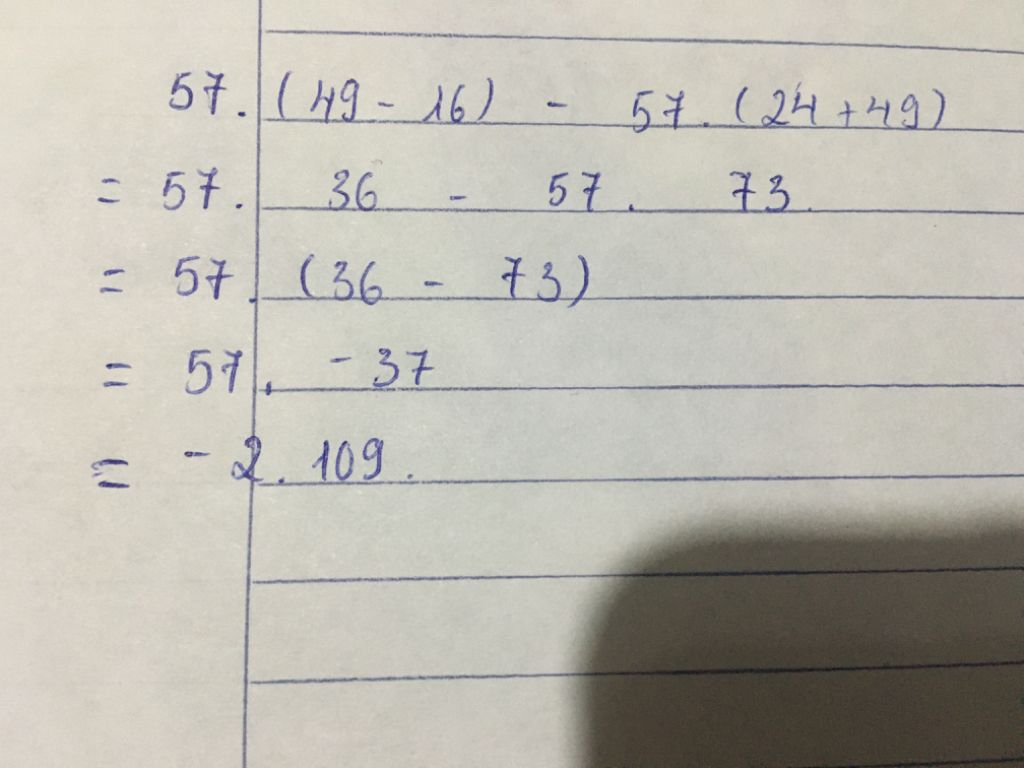 57. (49 - 16) - 57. (24 + 49)
= 57. 36 - 57. 73
= 57. (36 - 73)
= 57. -37
= -2.109.